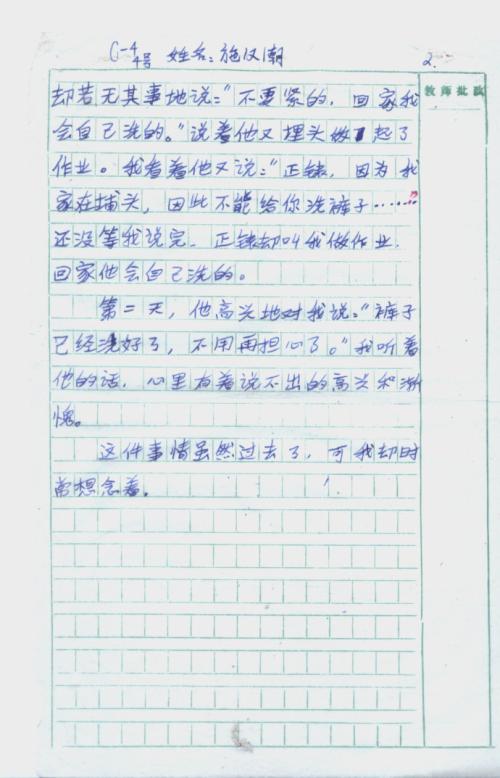 C-4 4号 姓名：施汉潮 2.
教师批改
却若无其事地说：“不要紧的，回家我
会自己洗的。”说着他又埋头做起了
作业。我看着他又说：“正铼，因为我
家在埔头，因此不能给你洗裤子……”
还没等我说完，正铼却叫我做作业，
回家他会自己洗的。
第二天，他高兴地对我说：“裤子
已经洗好了，不用再担心了。”我听着
他的话，心里有着说不出的高兴和渐
愧。
这件事情虽然过去了，可我却时
常想念着。